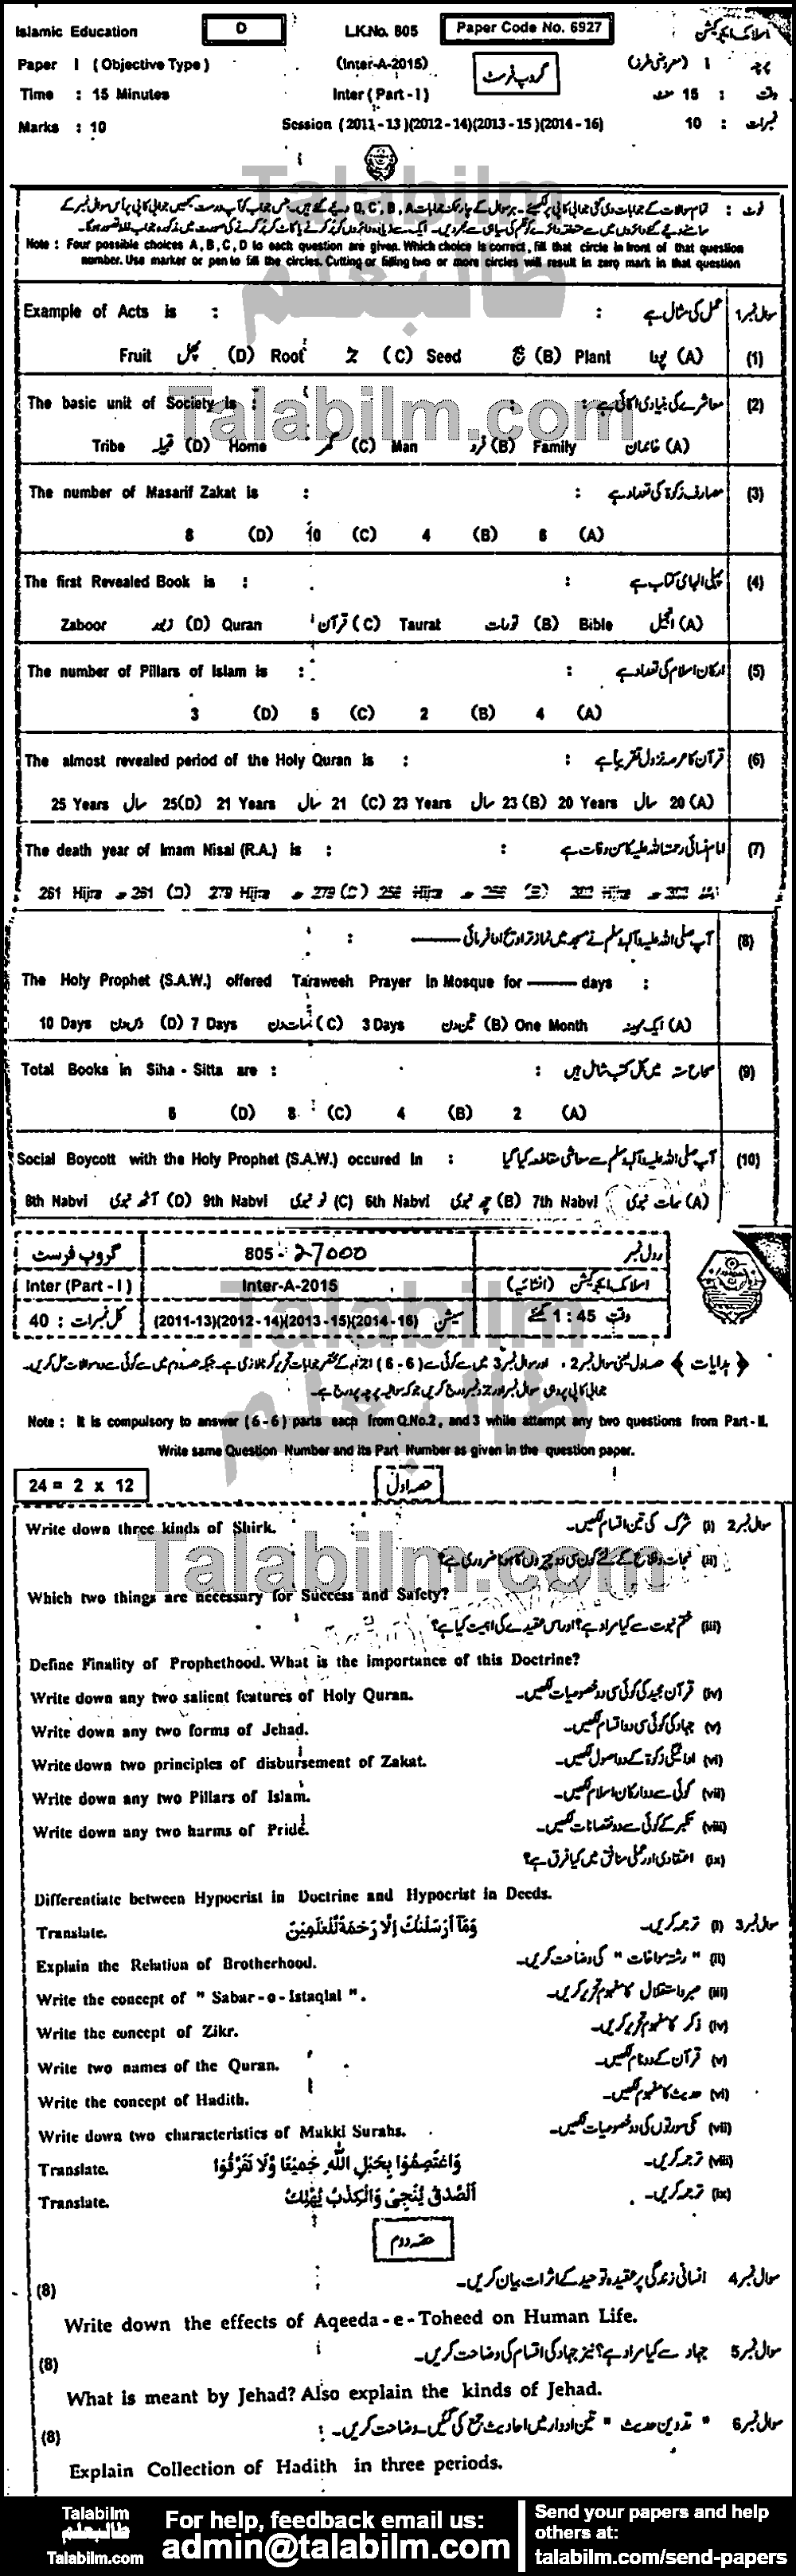 Islamic Education D L.K.No. 805 Paper Code No. 6927 اسلامک ایجوکیشن
Paper I ( Objective Type ) (Inter-A-2015) گروپ فرسٹ پرچہ I (معروضی طرز)
Time : 15 Minutes Inter ( Part - I ) وقت : 15 منٹ
Marks : 10 Session (2011-13)(2012-14)(2013-15)(2014-16) نمبرات : 10
Talabilm
طالبعلم
نوٹ : تمام سوالات کے جوابات دی گئی جوابی کاپی پر لکھیئے۔ ہر سوال کے چار ممکنہ جوابات D, C, B, A دیئے گئے ہیں۔ جس جواب کو آپ درست سمجھیں جوابی کاپی پر اس سوال نمبر کے
سامنے دیئے گئے دائروں میں سے متعلقہ دائرے کو قلم کی سیاہی سے بھر دیں۔ ایک سے زیادہ دائروں کو پُر کرنے یا کاٹ کر پُر کرنے کی صورت میں مذکورہ جواب غلط تصور ہوگا۔
Note : Four possible choices A, B, C, D to each question are given. Which choice is correct, fill that circle in front of that question
number. Use marker or pen to fill the circles. Cutting or filling two or more circles will result in zero mark in that question
Example of Acts is : : عمل کی مثال ہے سوال نمبر 1
Fruit پھل (D) Root جڑ (C) Seed بیج (B) Plant پودا (A) (1)
Talabilm.com
The basic unit of Society is : : معاشرے کی بنیادی اکائی ہے (2)
Tribe قبیلہ (D) Home گھر (C) Man فرد (B) Family خاندان (A)
The number of Masarif Zakat is : : مصارف زکوٰۃ کی تعداد ہے (3)
8 (D) 10 (C) 4 (B) 6 (A)
The first Revealed Book is : : پہلی الہامی کتاب ہے (4)
Zaboor زبور (D) Quran قرآن (C) Taurat تورات (B) Bible انجیل (A)
The number of Pillars of Islam is : : ارکان اسلام کی تعداد ہے (5)
3 (D) 5 (C) 2 (B) 4 (A)
The almost revealed period of the Holy Quran is : : قرآن کا عرصہ نزول تقریباً ہے (6)
25 Years سال 25(D) 21 Years سال 21 (C) 23 Years سال 23 (B) 20 Years سال 20 (A)
The death year of Imam Nisai (R.A.) is : : امام نسائی رحمتہ اللہ علیہ کا سن وفات ہے (7)
261 Hijra 261 (D) 279 Hijra 279 (C) 256 Hijra 256 (B) 303 Hijra 303
: آپ صلی اللہ علیہ وآلہ وسلم نے مسجد میں نماز تراویح ادا فرمائی ——— (8)
The Holy Prophet (S.A.W.) offered Taraweeh Prayer in Mosque for ——— days :
10 Days دس دن (D) 7 Days سات دن (C) 3 Days تین دن (B) One Month ایک مہینہ (A)
Total Books in Siha - Sitta are : : صحاح ستہ میں کل کتب شامل ہیں (9)
6 (D) 8 (C) 4 (B) 2 (A)
Social Boycott with the Holy Prophet (S.A.W.) occured in : آپ صلی اللہ علیہ وآلہ وسلم سے معاشی مقاطعہ کیا گیا (10)
8th Nabvi آٹھ نبوی (D) 9th Nabvi نو نبوی (C) 6th Nabvi چھ نبوی (B) 7th Nabvi سات نبوی (A)
گروپ فرسٹ 805 - 27000 رول نمبر
Inter (Part - I) Inter-A-2015 اسلامک ایجوکیشن (انشائیہ)
کل نمبرات : 40 سیشن (2011-13)(2012-14)(2013-15)(2014-16) وقت 1 : 45 گھنٹے
Talabilm
طالبعلم
﴿ ہدایات ﴾ حصہ اول یعنی سوال نمبر 2، اور سوال نمبر 3 میں سے کوئی سے (6 - 6) اجزاء کے مختصر جوابات تحریر کرنا لازمی ہے۔ جبکہ حصہ دوم میں سے کوئی سے دو سوالات حل کریں۔
جوابی کاپی پر وہی سوال نمبر اور جز نمبر درج کریں جو کہ سوالیہ پرچہ پر درج ہے۔
Note : It is compulsory to answer (6 - 6) parts each from Q.No.2, and 3 while attempt any two questions from Part - II.
Write same Question Number and its Part Number as given in the question paper.
24 = 2 x 12 حصہ اول
Write down three kinds of Shirk. سوال نمبر 2 (i) شرک کی تین اقسام لکھیں۔
Talabilm.com
(ii) نجات و فلاح کے لئے کون سی دو چیزوں کا ہونا ضروری ہے؟
Which two things are necessary for Success and Safety?
(iii) ختم نبوت سے کیا مراد ہے؟ اور اس عقیدے کی اہمیت کیا ہے؟
Define Finality of Prophethood. What is the importance of this Doctrine?
Write down any two salient features of Holy Quran. (iv) قرآن مجید کی کوئی سی دو خصوصیات لکھیں۔
Write down any two forms of Jehad. (v) جہاد کی کوئی سی دو اقسام لکھیں۔
Write down two principles of disbursement of Zakat. (vi) ادائیگی زکوٰۃ کے دو اصول لکھیں۔
Write down any two Pillars of Islam. (vii) کوئی سے دو ارکان اسلام لکھیں۔
Write down any two harms of Pride. (viii) تکبر کے کوئی سے دو نقصانات لکھیں۔
(ix) اعتقادی اور عملی منافق میں کیا فرق ہے؟
Differentiate between Hypocrist in Doctrine and Hypocrist in Deeds.
Translate. وَمَآ اَرْسَلْنٰكَ اِلَّا رَحْمَةً لِّلْعٰلَمِيْنَ سوال نمبر 3 (i) ترجمہ کریں۔
Explain the Relation of Brotherhood. (ii) " رشتہ مواخات " کی وضاحت کریں۔
Write the concept of " Sabar - o - Istaqlal ". (iii) صبر و استقلال کا مفہوم تحریر کریں۔
Write the concept of Zikr. (iv) ذکر کا مفہوم تحریر کریں۔
Write two names of the Quran. (v) قرآن کے دو نام لکھیں۔
Write the concept of Hadith. (vi) حدیث کا مفہوم لکھیں۔
Write down two characteristics of Makki Surahs. (vii) مکی سورتوں کی دو خصوصیات لکھیں۔
Translate. وَاعْتَصِمُوْا بِحَبْلِ اللّٰهِ جَمِيْعًا وَّلَا تَفَرَّقُوْا (viii) ترجمہ کریں۔
Translate. اَلصِّدْقُ يُنْجِىْ وَالْكِذْبُ يُهْلِكُ (ix) ترجمہ کریں۔
حصہ دوم
(8) سوال نمبر 4 انسانی زندگی پر عقیدہ توحید کے اثرات بیان کریں۔
Write down the effects of Aqeeda - e - Toheed on Human Life.
(8) سوال نمبر 5 جہاد سے کیا مراد ہے؟ نیز جہاد کی اقسام کی وضاحت کریں۔
What is meant by Jehad? Also explain the kinds of Jehad.
(8) سوال نمبر 6 " تدوین حدیث " تین ادوار میں احادیث جمع کی گئیں۔ وضاحت کریں۔
Explain Collection of Hadith in three periods.
Talabilm
طالبعلم
Talabilm.com
For help, feedback email us:
admin@talabilm.com
Send your papers and help
others at:
talabilm.com/send-papers